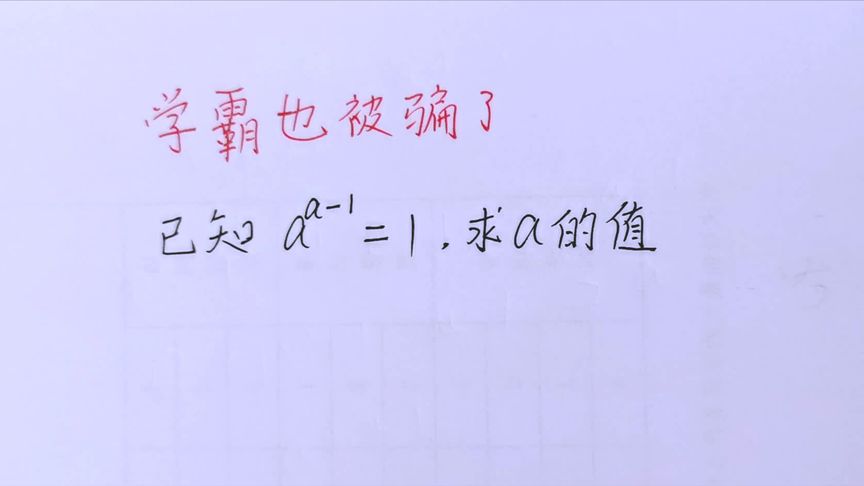 学霸也被骗了
已知 a^{a-1}=1.求a的值